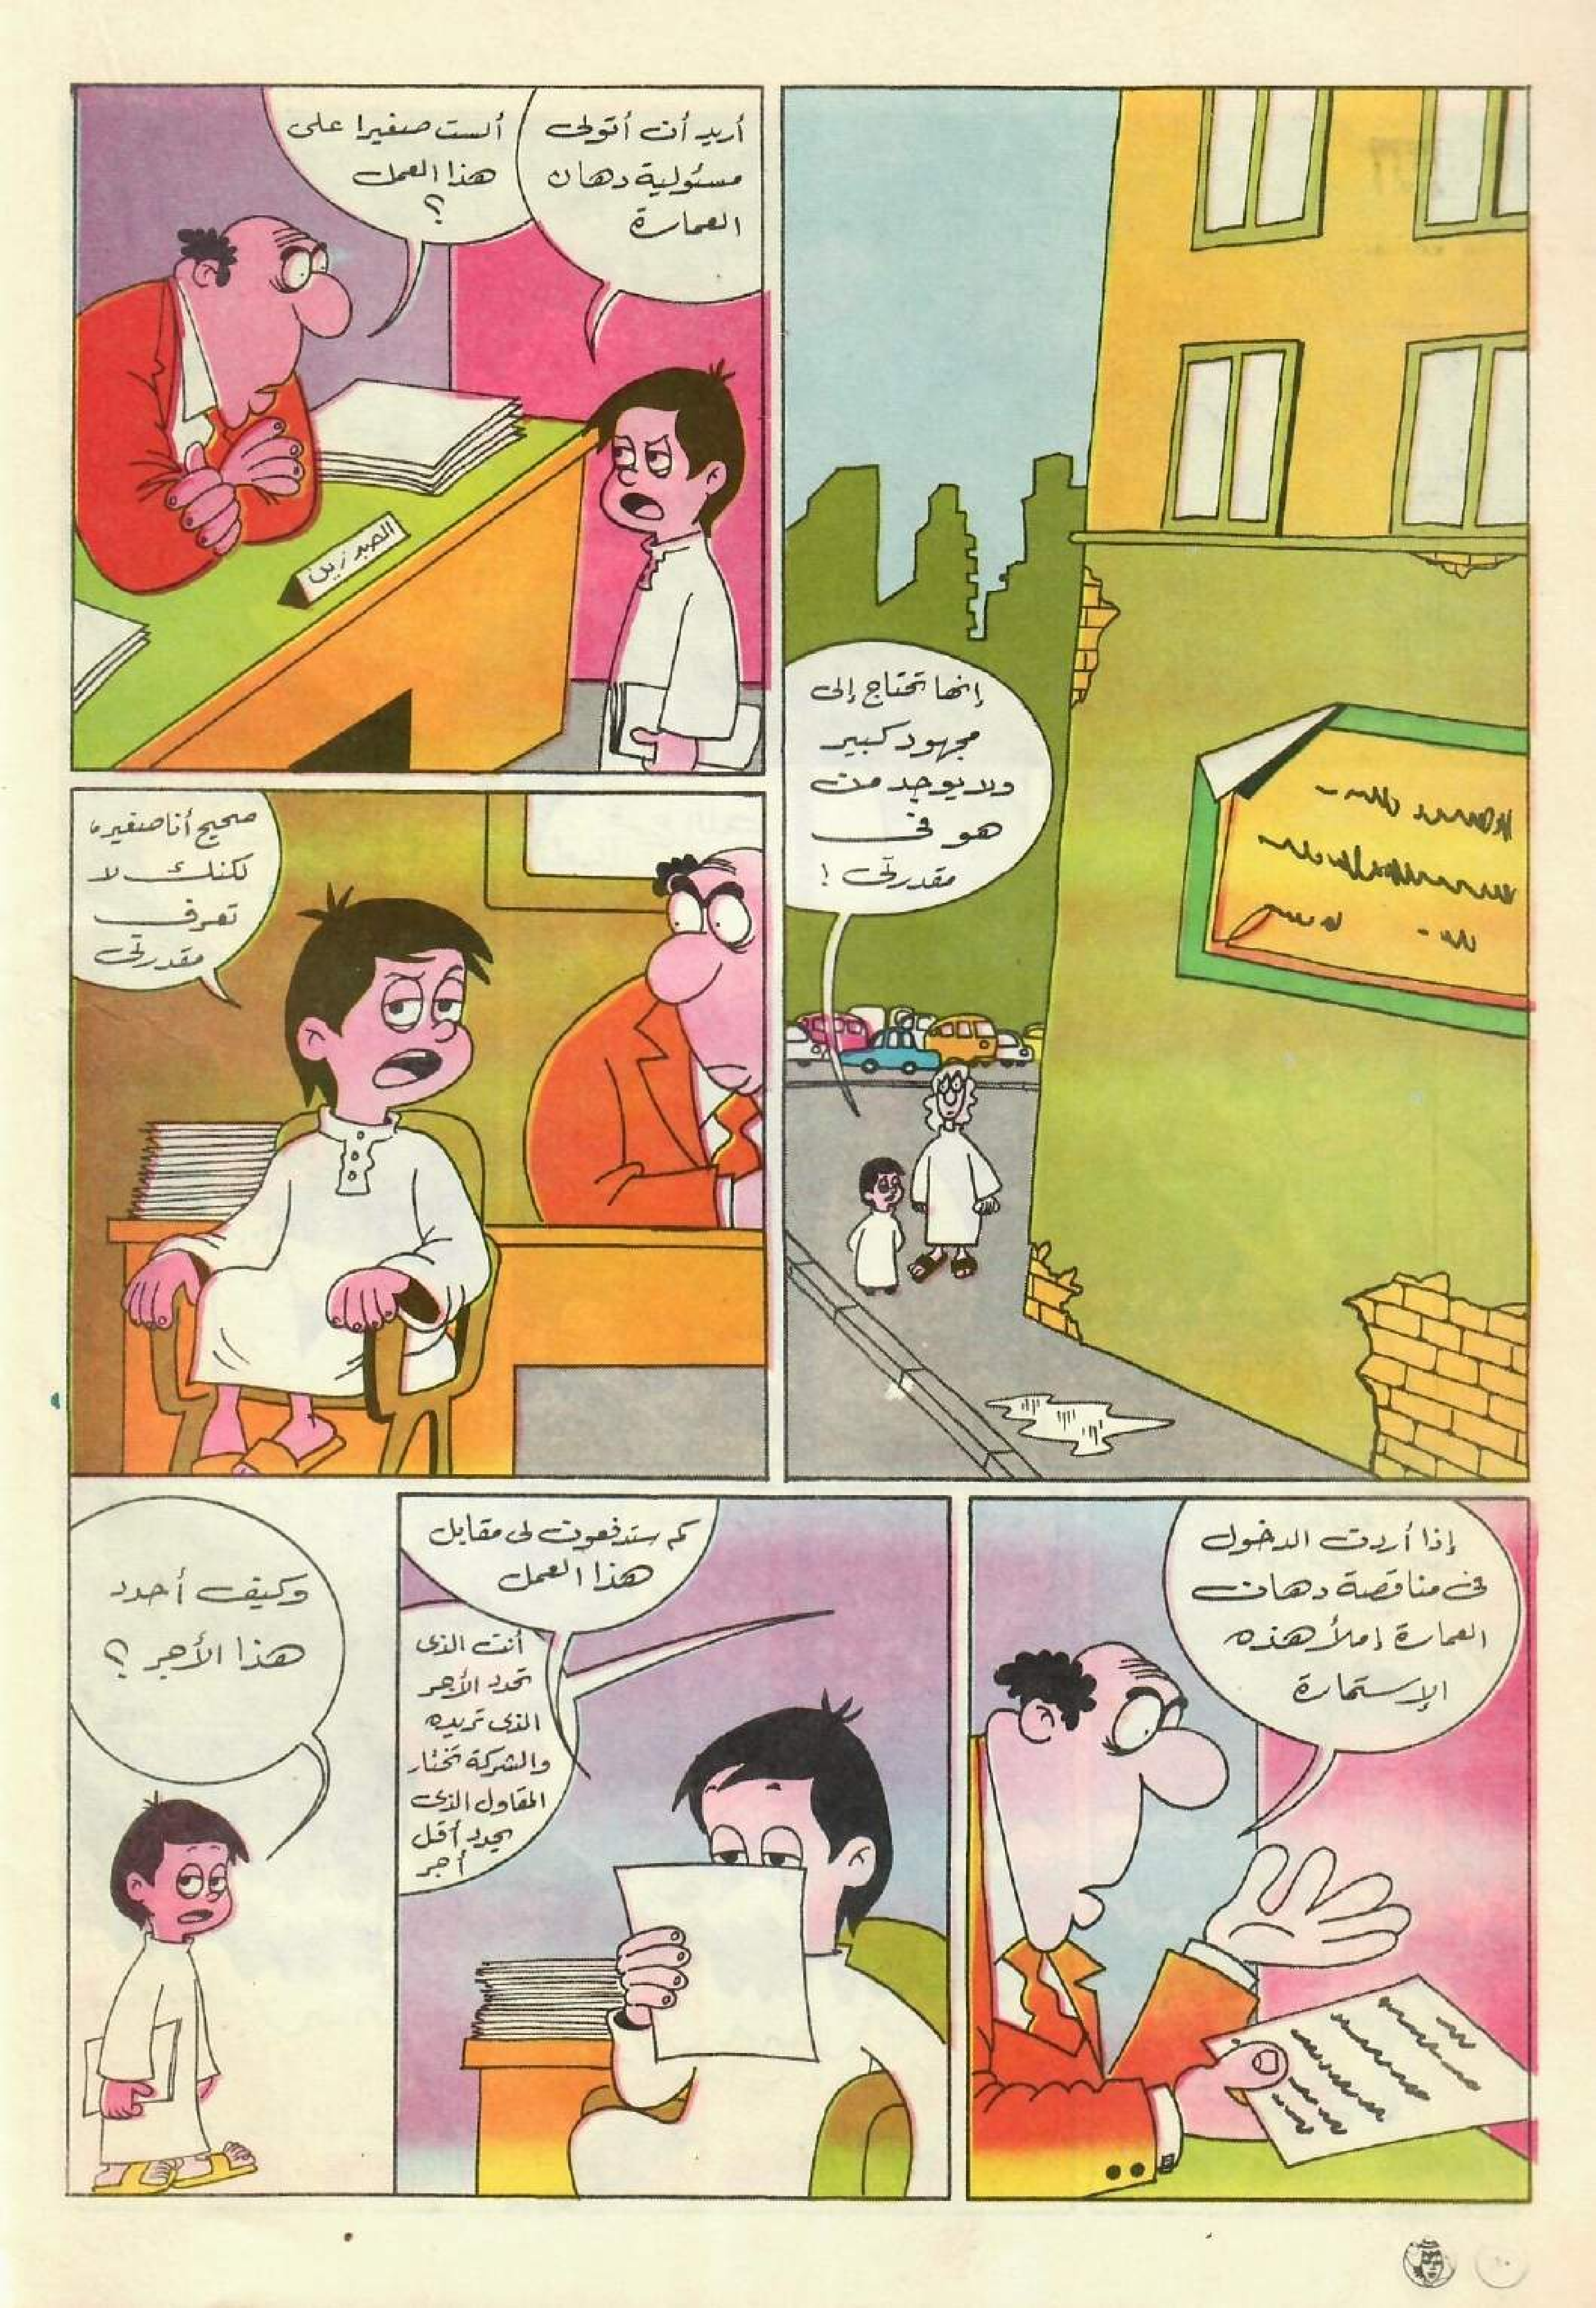 إنها تحتاج إلى
مجهود كبير
ولا يوجد من
هو في
مقدرتى !
أريد أن أتولى
مسئولية دهان
العمارة
ألست صغيرا على
هذا العمل
؟
صحيح أنا صغير،
لكنك لا
تعرف
مقدرتى
إذا أردت الدخول
فى مناقصة دهان
العمارة إملأ هذه
الإستمارة
كم ستدفعون لى مقابل
هذا العمل
أنت الذى
تحدد الأجر
الذى تريده
والشركة تختار
المقاول الذى
يحدد أقل
أجر
وكيف أحدد
هذا الأجر ؟